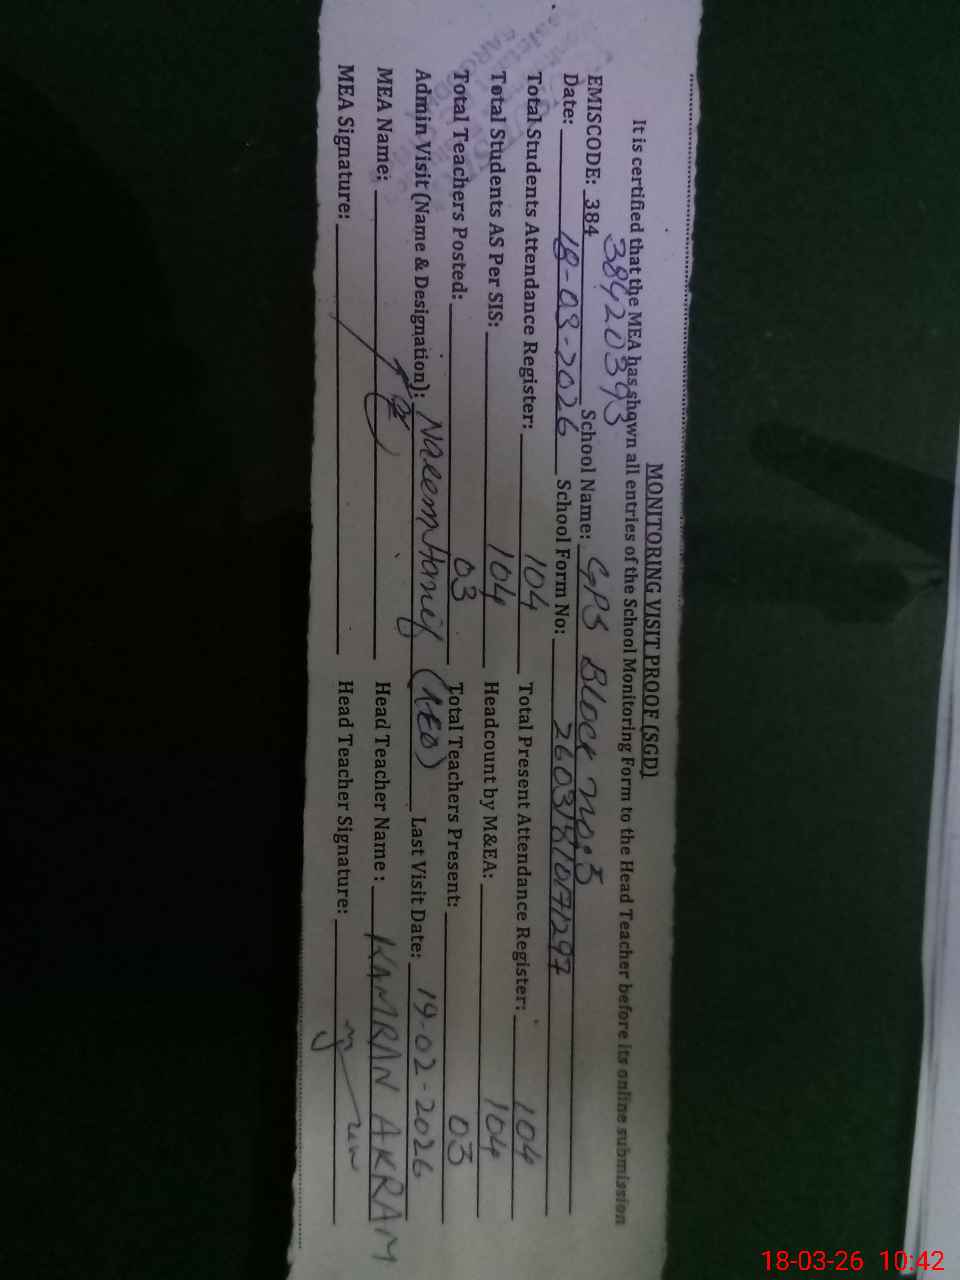 MONITORING VISIT PROOF (SGD)
It is certified that the MEA has shown all entries of the School Monitoring Form to the Head Teacher before its online submission
38420393
EMISCODE: 384 School Name: GPS Block No: 5
Date: 18-03-2026 School Form No:
Total Students Attendance Register: 104 Total Present Attendance Register: 104
Total Students AS Per SIS: 104 Headcount by M&EA: 104
Total Teachers Posted: 03 Total Teachers Present: 03
Admin Visit (Name & Designation): Naeem Hanif (AEO) Last Visit Date: 19-02-2026
MEA Name: Head Teacher Name : KAMRAN AKRAM
MEA Signature: Head Teacher Signature:
18-03-26 10:42